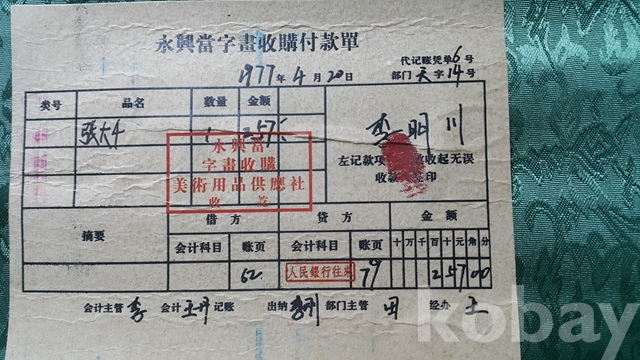 永興當字畫收購付款單
代记账凭单6号
1977年4月20日 部门天字14号
类号 品名 數量 金额
張大千 1 257
李明川
左记款项 收起无误
收款 印
永興當
字畫收購
美術用品供應社
收 訖
摘要 借方 贷方 金额
会计科目 账页 会计科目 账页 十万千百十元角分
62 人民銀行往來 79 25700
会计主管 李 会计 王丹 记账 出纳 部门主管 田 经办 王
kobay